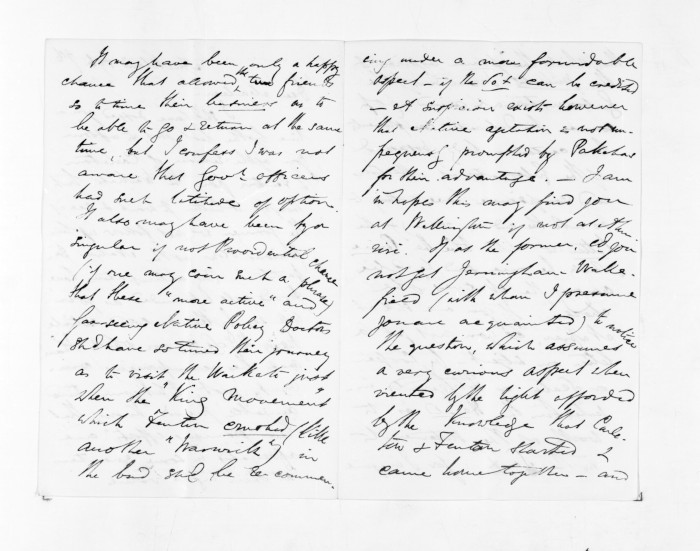 It may have been only a happy
chance that allowed the two friends
so to time their business as to
be able to go & return at the same
time, but I confess I was not
aware that Govt. officers
had such latitude of option.
It also may have been by a
singular if not Providential chance
(if one may coin such a phrase)
that these "more active" and
farseeing Native Policy Doctors
shd have so timed their journey
as to visit the Waikato just
when the "King Movement"
which Fenton crushed (like
another "Warwick") in
the bud shd be re-commen-
cing under a more formidable
aspect - if the Sot can be credited
- A suspicion exists however
that Native agitation is not un-
frequently prompted by Pakehas
for their advantage. - I am
in hopes this may find you
at Wellington if not at Ahu-
riri. If at the former, cd you
not get Jerningham Wake-
field (with whom I presume
you are acquainted) to notice
the question, which assumes
a very curious aspect when
viewed by the light afforded
by the knowledge that Carle-
ton & Fenton started &
came home together - and